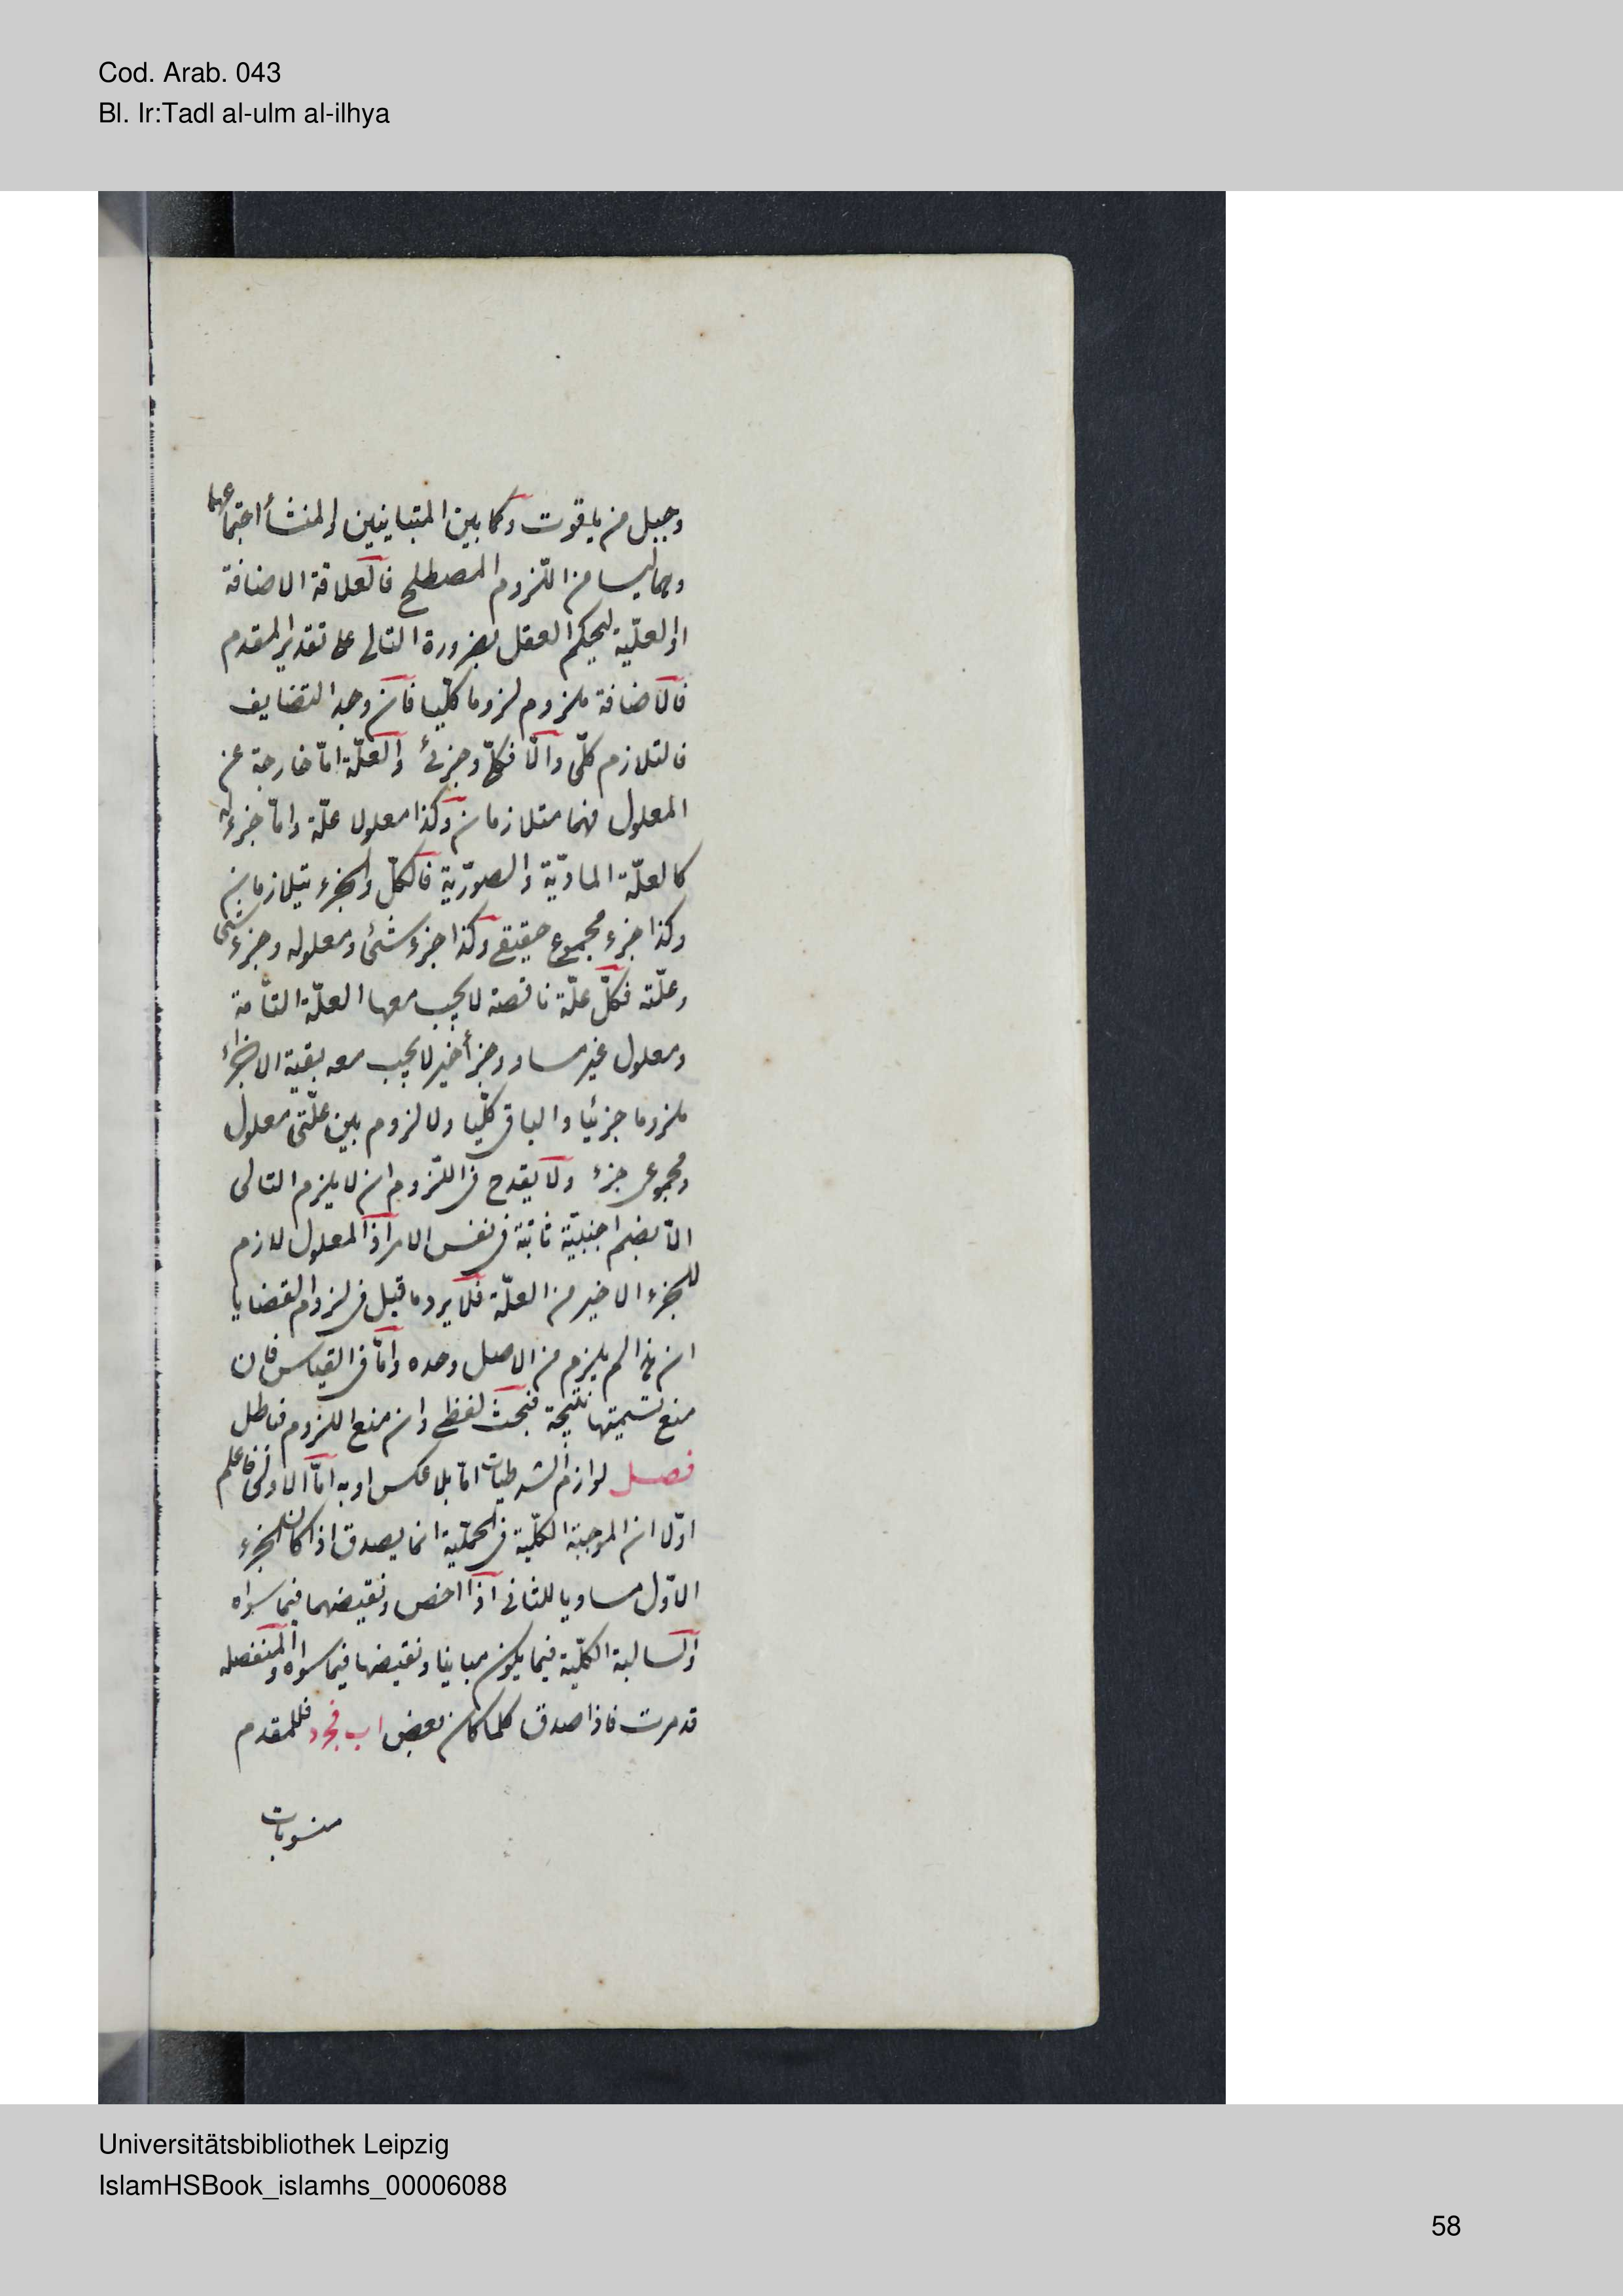 Cod. Arab. 043
Bl. Ir:Tadl al-ulm al-ilhya
وجبل من ياقوت وكما بين المتباينين والمنشأ اجتماعهما
وهما ليسا من اللزوم المصطلح فالعلاقة الاضافة
او العلّية ليحكم العقل بضرورة التالى على تقدير المقدم
فالاضافة ملزوم لزوما كليّا فان وجد التضايف
فالتلازم كلّى والّا فكلّى وجزئى والعلّة امّا خارجة عن
المعلول فهما متلازمان وكذا معلولا علّة وامّا جزء له
كالعلّة المادّية والصورّية فالكلّ والجزء يتلازمان
وكذا جزء مجموع حقيقى وكذا جزء شئ ومعلوله وجزء شئ
وعلّته فكلّ علّة ناقصة لا يجب معها العلّة التامّة
ومعلول غير مساو وجزء أخير لا يجب معه بقية الاجزاء
ملزوما جزئيا والباقى كلّيا ولا لزوم بين علّتى معلول
ومجموعى جزء ولا يقدح فى اللّزوم ان لا يلزم التالى
الّا بضم اجنبيّة ثابتة فى نفس الامر اذ المعلول لازم
للجزء الاخير من العلّة فلا يرد ما قيل فى لزوم القضايا
ان هذا لم يلزم من الاصل وحده وامّا فى القياس فان
منع تسميتها نتيجة فبحث لفظى وان منع اللزوم فباطل
فصل لوازم الشرطيات امّا بلا عكس او به امّا الاولى فاعلم
اوّلا ان الموجبة الكلّية فى الحملّية انما يصدق اذا كان الجزء
الاوّل مساويا للثانى اذا اخص ونقيضهما فيما سواه
والسالبة الكلّية فيما يكون مباينا ونقيضها فيما سواه والمنفصلة
قد مرت فاذا صدق كلما كان بعض اب فجد فللمقدم
منسوبات
Universitätsbibliothek Leipzig
IslamHSBook_islamhs_00006088
58